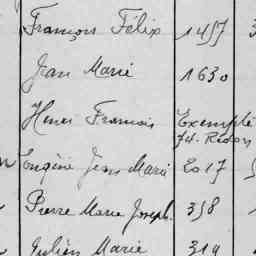 François Félix 1457
Jean Marie 1630
Henri Francois Exempté
Eugène Jean Marie 2017
Pierre Marie Joseph. 358
Julien Marie 319